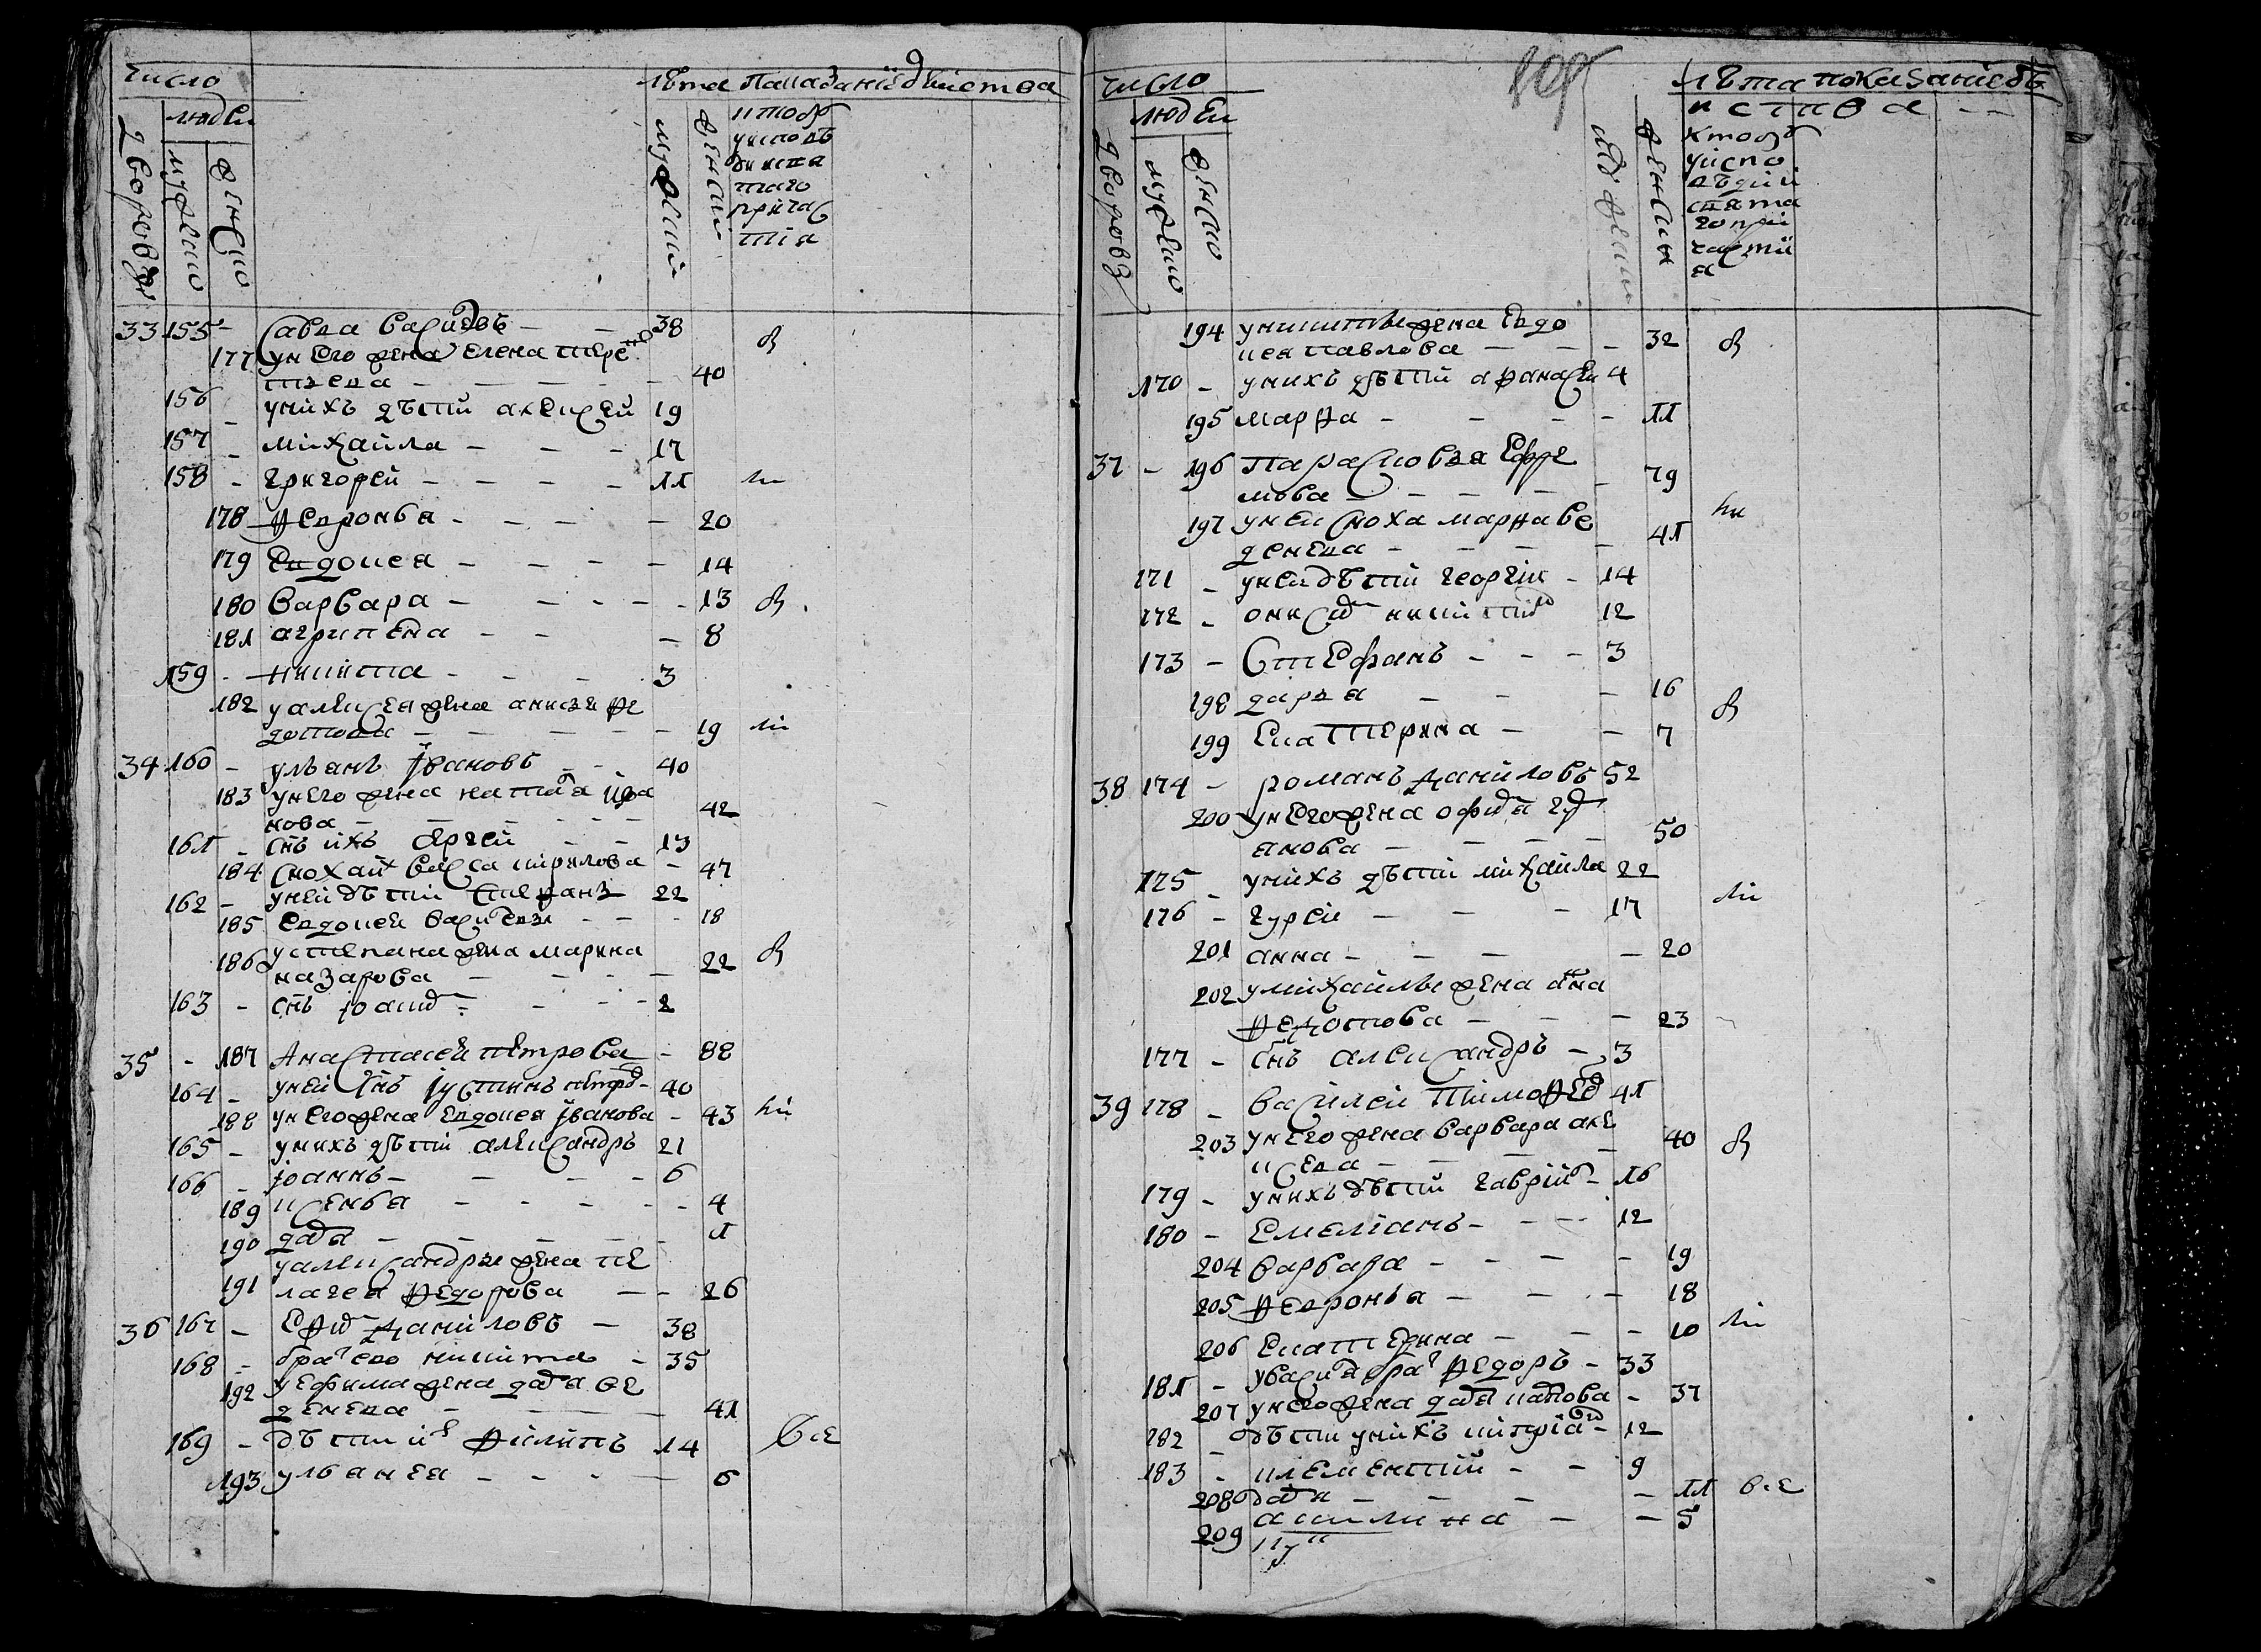 число
лѣта показанїе дѣиства
людеи
дворовъ
мужеско
женско
мужескїи
женскїи
кто бъ
у исповѣ
ди и свя
таго
прича
стїя
33 155 - Савва Васильевъ - - 38
177 у него жена Елена Терен
тьева - - - - - 40
156 - у нихъ дѣти Алексѣй 19
157 - михаила - - - 17
158 - григорей - - - - 11
178 Феѵронья - - - - 20
179 Евдокея - - - - 14
180 варвара - - - - 13
181 агрипена - - - 8
159 - никита - - - 3
182 у алексея жена анисья Фе
дотова - - - - - 19
34 160 - ульянъ Ївановъ - - 40
183 у него жена наталья Ива
нова - - - - - 42
161 - снъ ихъ Сергей - - 13
184 сноха их васса кирилова - 47
162 - у ней дѣти степанъ 22
185 Евдокея васильева - - - 18
186 у степана жена марина
назарова - - - - 22
163 - снъ їоаким - - - 2
35 - 187 Анастасея петрова - 88
164 - у ней снъ Їустинъ петров - 40
188 у него жена Евдокея Їванова - 43
165 - у нихъ дѣти александръ 21
166 - їоаннъ - - - - 6
189 ксенья - - - - - 4
190 дарья - - - - - 1
у александры жена пе
191 лагея Федорова - - 26
36 167 - Ефим Даниловъ - 38
168 - брат ево никита - 35
192 у ефима жена дарья Ве
денева - - - 41
169 - дѣти их Филипъ 14 все
193 ульянея - - - - 6
число
лѣта показанїе дѣ
иства - -
людеи
дворовъ
мужеско
женско
женскїи
кто бъ
у испо
вѣдии
свята
го при
частїи
я
194 у никиты жена Евдо
кея павлова - - - 32
170 - у нихъ дѣти афанасеи 4
195 марфа - - - - 11
37 - 196 Парасковья Ефре
мова - - - - - 79
197 у неи сноха марфа Ве
денева - - - - 41
171 - у неи дѣти георгїи - 14
172 - онисим никитин 12
173 - Стефанъ - - - 3
198 дарья - - - 16
199 Екатерина - - 7
38 174 - романъ даниловъ 52
200 у него жена
анова - - - - 50
175 - у нихъ дѣти михаила 22
176 - гуреи - - - 17
201 анна - - - - 20
202 у михаилы жена анна
Федотова - - - 23
177 - снъ александръ - 3
39 178 - василеи тимофеев 41
203 у него жена варвара але
ксеева - - - - 40
179 - у нихъ дѣти гаврїил - 16
180 - Емелїанъ - - - 12
204 варвара - - - - 19
205 Феѵронья - - - 18
206 Екатерина - - - 10
181 - у василья брат Федоръ - 33
207 у него жена дарья карпова - 37
182 - дѣти у нихъ киприан - 12
183 - клементий - - 9
208 дарья - - - - 11 все
209 акилина - - 5